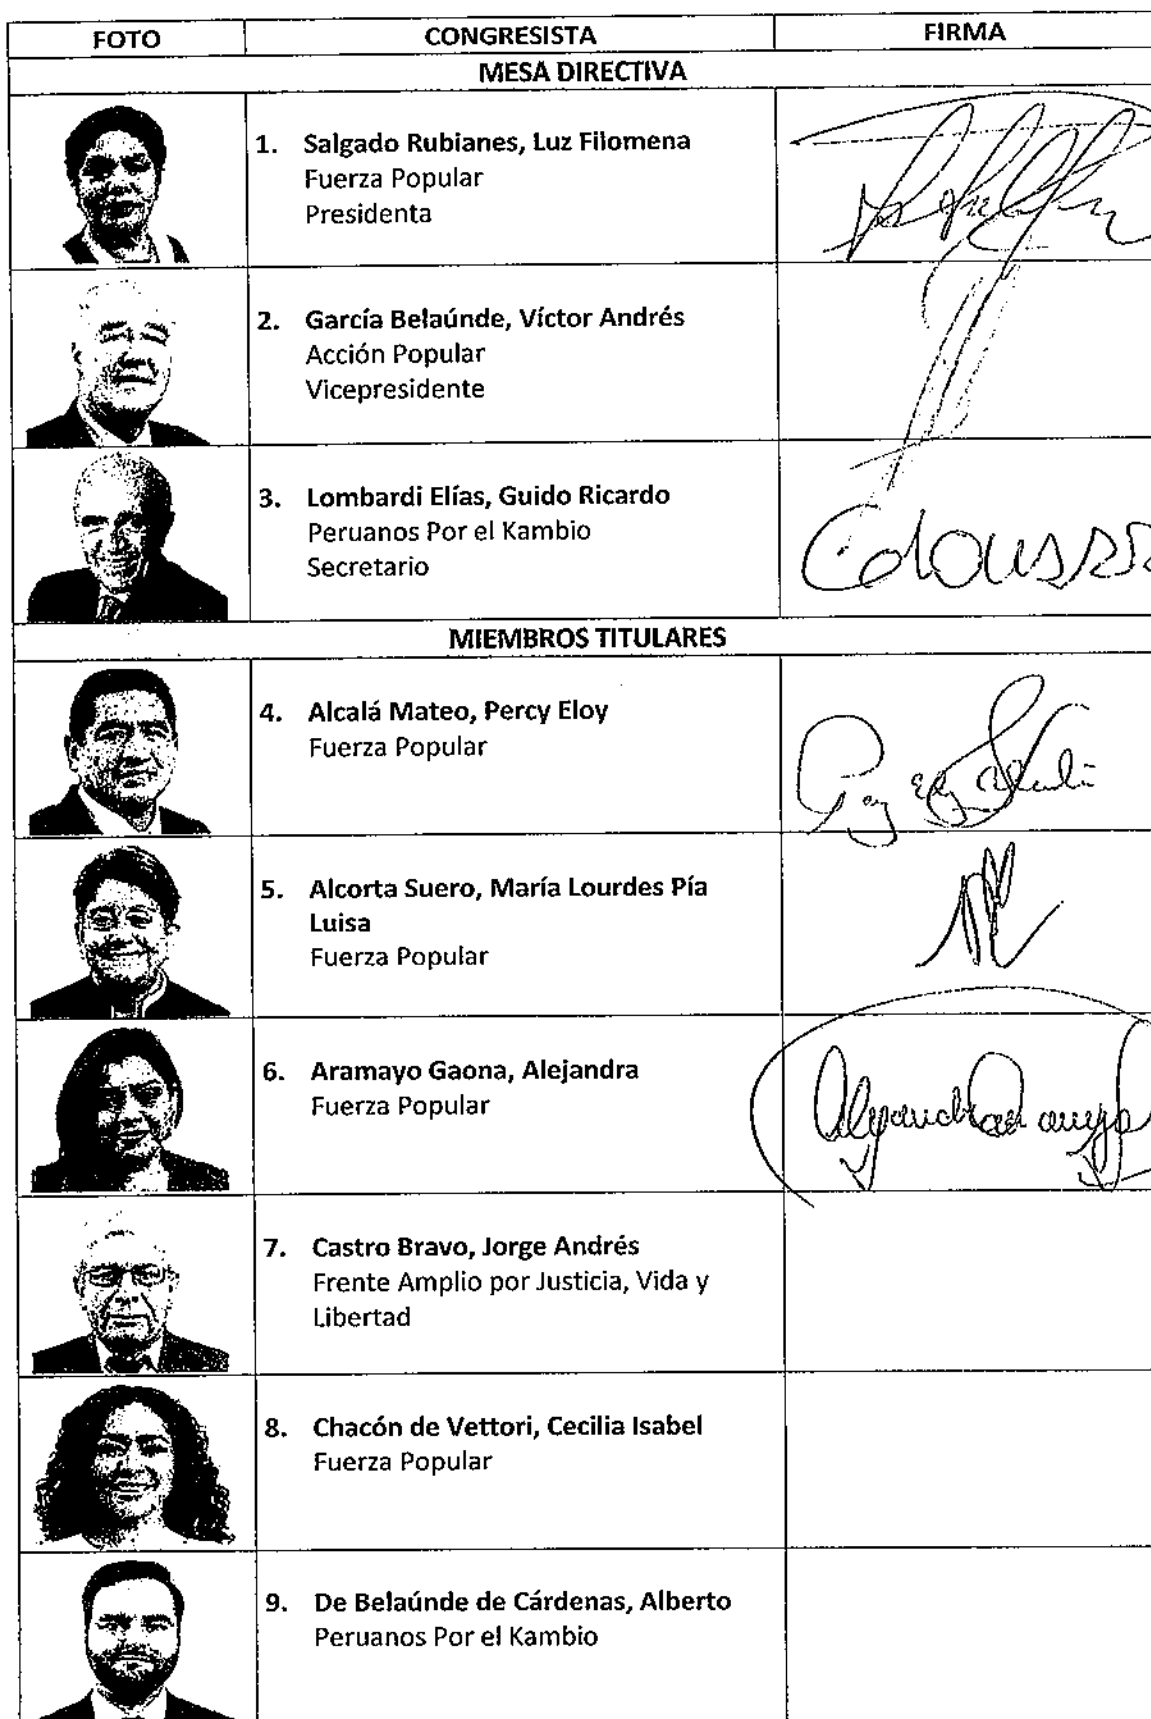 FOTO CONGRESISTA FIRMA
MESA DIRECTIVA
1. Salgado Rubianes, Luz Filomena
Fuerza Popular
Presidenta
2. García Belaúnde, Víctor Andrés
Acción Popular
Vicepresidente
3. Lombardi Elías, Guido Ricardo
Peruanos Por el Kambio
Secretario
MIEMBROS TITULARES
4. Alcalá Mateo, Percy Eloy
Fuerza Popular
5. Alcorta Suero, María Lourdes Pía
Luisa
Fuerza Popular
6. Aramayo Gaona, Alejandra
Fuerza Popular
7. Castro Bravo, Jorge Andrés
Frente Amplio por Justicia, Vida y
Libertad
8. Chacón de Vettori, Cecilia Isabel
Fuerza Popular
9. De Belaúnde de Cárdenas, Alberto
Peruanos Por el Kambio